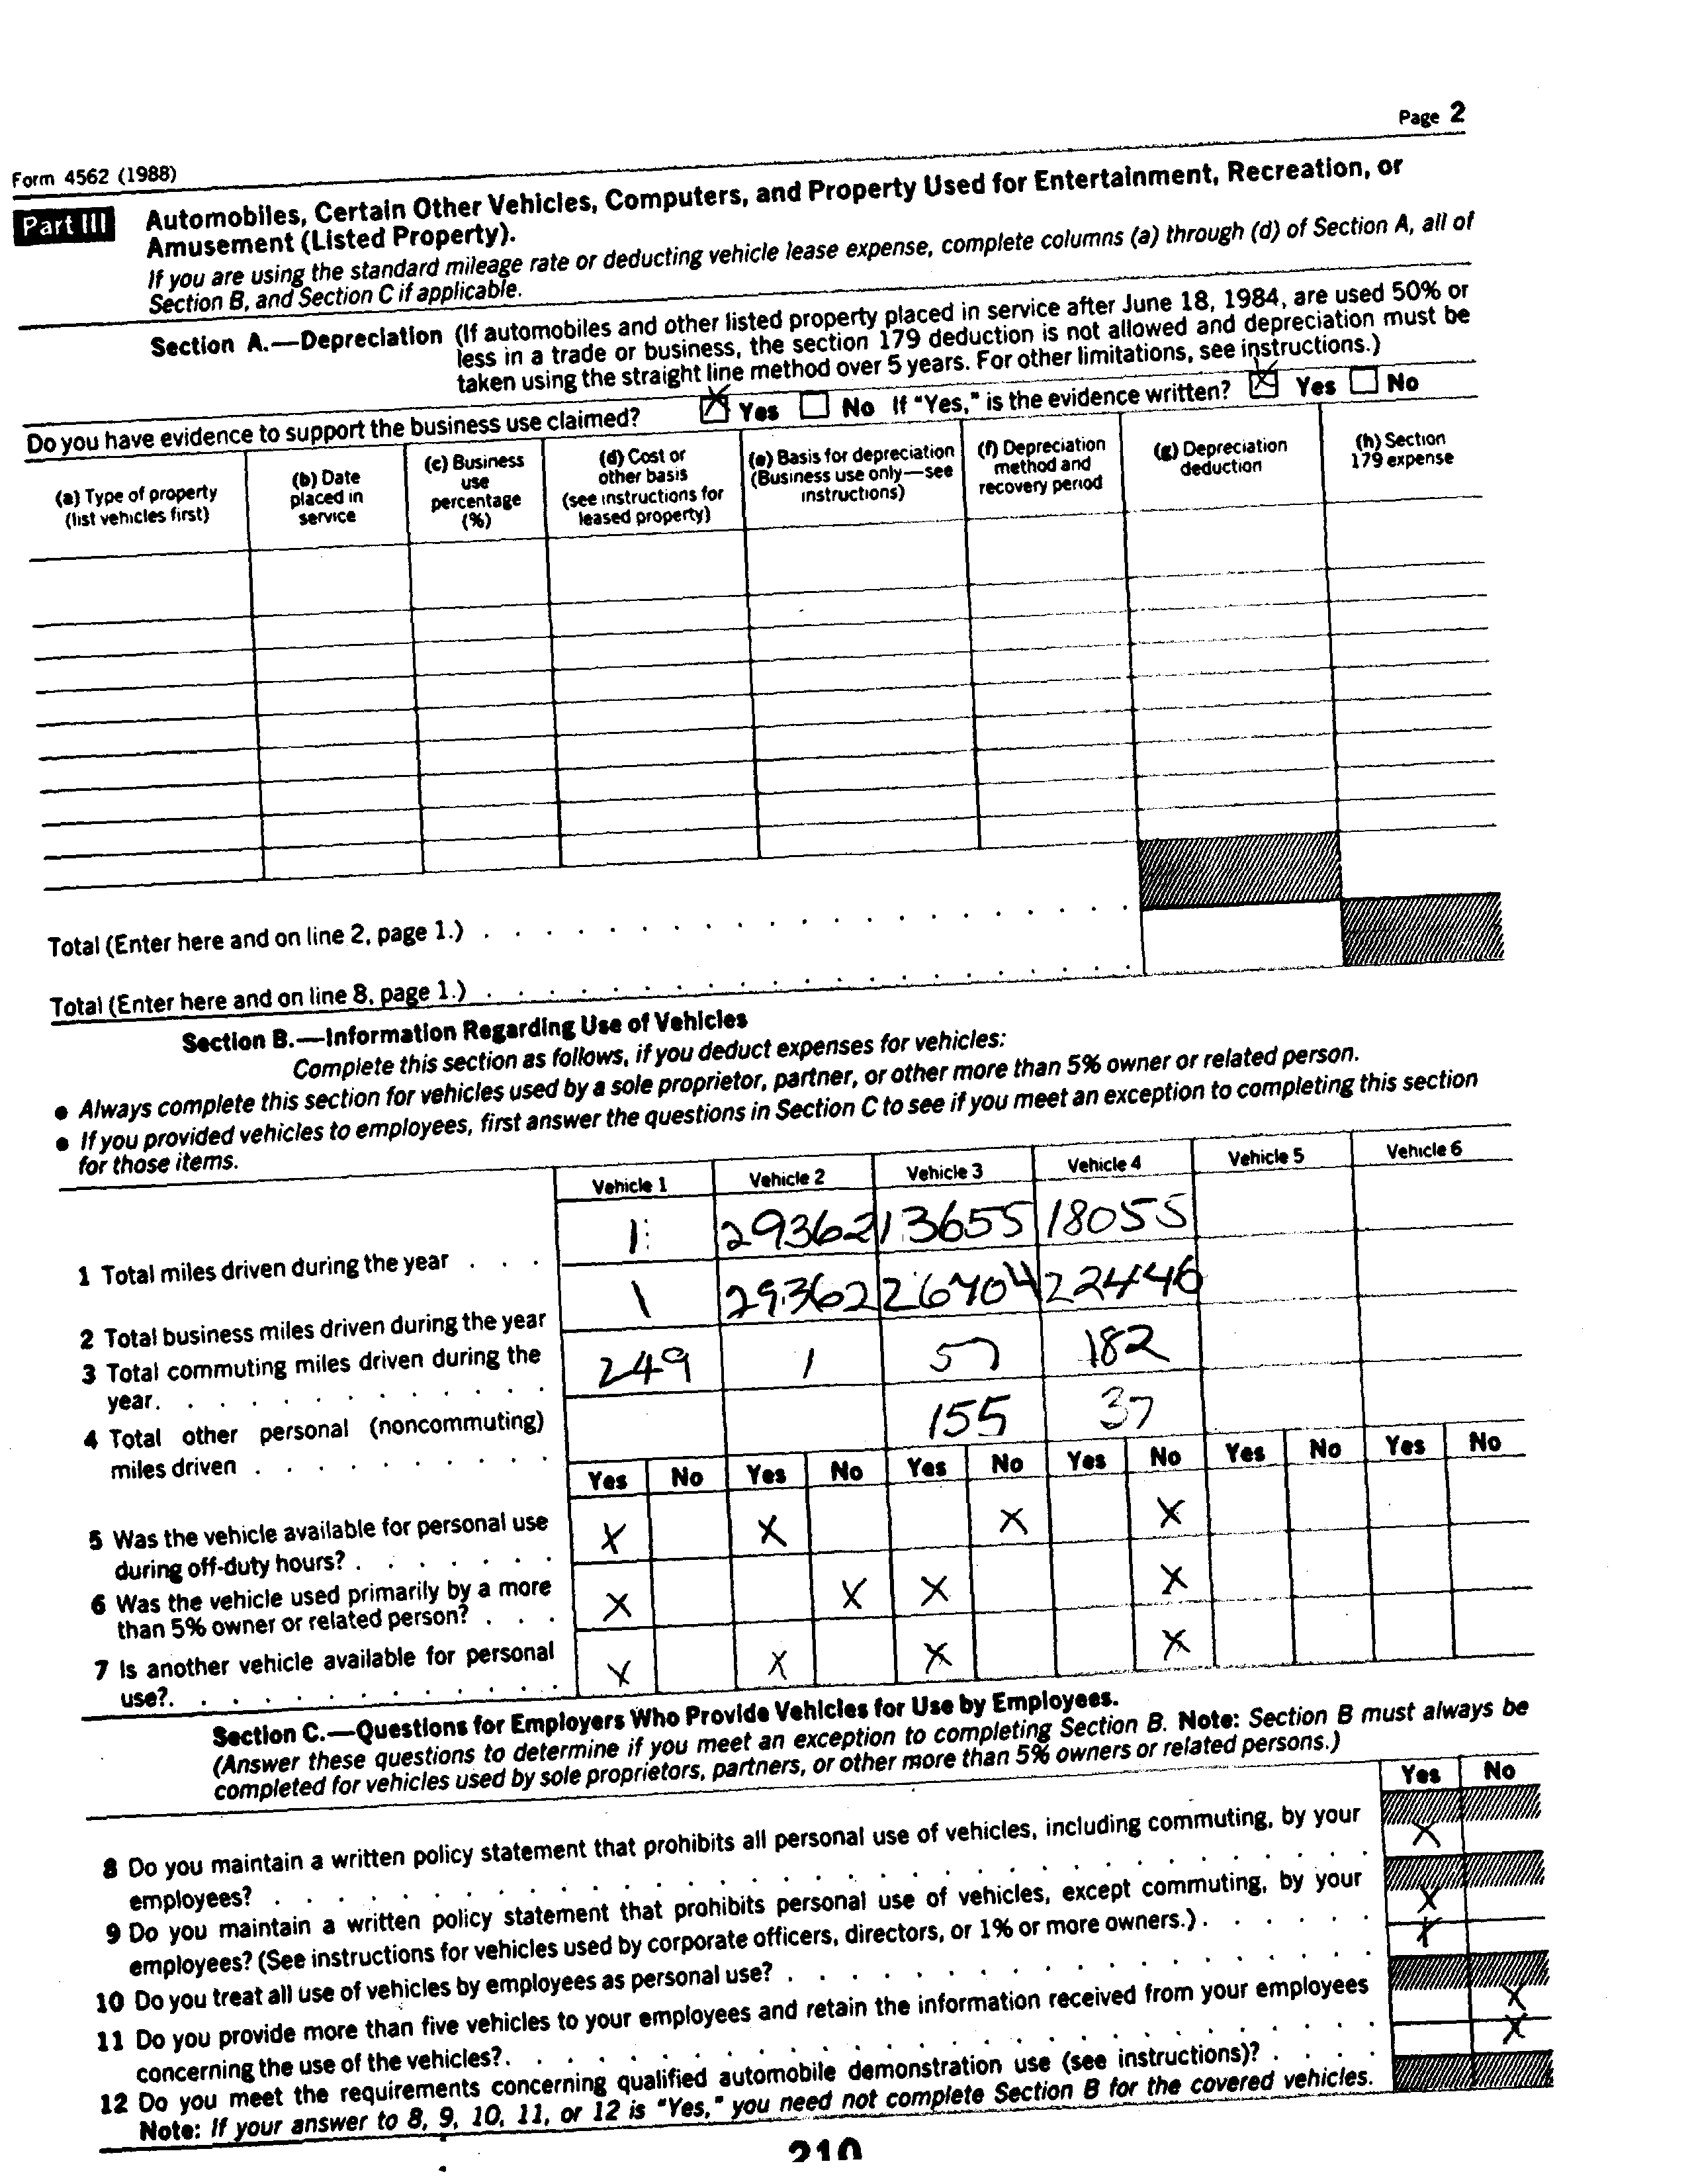 Page 2
Form 4562 (1988)
Part III Automobiles, Certain Other Vehicles, Computers, and Property Used for Entertainment, Recreation, or
Amusement (Listed Property).
If you are using the standard mileage rate or deducting vehicle lease expense, complete columns (a) through (d) of Section A, all of
Section B, and Section C if applicable.
Section A.—Depreciation (If automobiles and other listed property placed in service after June 18, 1984, are used 50% or
less in a trade or business, the section 179 deduction is not allowed and depreciation must be
taken using the straight line method over 5 years. For other limitations, see instructions.)
Do you have evidence to support the business use claimed? X Yes No If "Yes," is the evidence written? X Yes No
(a) Type of property
(list vehicles first)
(b) Date
placed in
service
(c) Business
use
percentage
(%)
(d) Cost or
other basis
(see instructions for
leased property)
(e) Basis for depreciation
(Business use only—see
instructions)
(f) Depreciation
method and
recovery period
(g) Depreciation
deduction
(h) Section
179 expense
Total (Enter here and on line 2, page 1.) . . . . . . . . . . . . . . . . . . . . .
Total (Enter here and on line 8, page 1.) . . . . . . . . . . . . . . . . . . . . .
Section B.—Information Regarding Use of Vehicles
Complete this section as follows, if you deduct expenses for vehicles:
● Always complete this section for vehicles used by a sole proprietor, partner, or other more than 5% owner or related person.
● If you provided vehicles to employees, first answer the questions in Section C to see if you meet an exception to completing this section
for those items.
Vehicle 1 Vehicle 2 Vehicle 3 Vehicle 4 Vehicle 5 Vehicle 6
1 Total miles driven during the year . . . 1 29362 13655 18055
2 Total business miles driven during the year 1 29362 26704 22446
3 Total commuting miles driven during the
year. . . . . . . . . . 249 1 57 182
4 Total other personal (noncommuting)
miles driven . . . . . . . . 155 37
Yes No Yes No Yes No Yes No Yes No Yes No
5 Was the vehicle available for personal use
during off-duty hours? . . . . . . X X X X
6 Was the vehicle used primarily by a more
than 5% owner or related person? . . . X X X X
7 Is another vehicle available for personal
use?. . . . . . . . . . . X X X X
Section C.—Questions for Employers Who Provide Vehicles for Use by Employees.
(Answer these questions to determine if you meet an exception to completing Section B. Note: Section B must always be
completed for vehicles used by sole proprietors, partners, or other more than 5% owners or related persons.)
Yes No
8 Do you maintain a written policy statement that prohibits all personal use of vehicles, including commuting, by your
employees? . . . . . . . . . . . . . . . . . . . . . X
9 Do you maintain a written policy statement that prohibits personal use of vehicles, except commuting, by your
employees? (See instructions for vehicles used by corporate officers, directors, or 1% or more owners.) . . . . . . X
10 Do you treat all use of vehicles by employees as personal use? . . . . . . . . . . . . . X
11 Do you provide more than five vehicles to your employees and retain the information received from your employees
concerning the use of the vehicles?. . . . . . . . . . . . . . . . . X
12 Do you meet the requirements concerning qualified automobile demonstration use (see instructions)? . . . . X
Note: If your answer to 8, 9, 10, 11, or 12 is "Yes," you need not complete Section B for the covered vehicles.
210